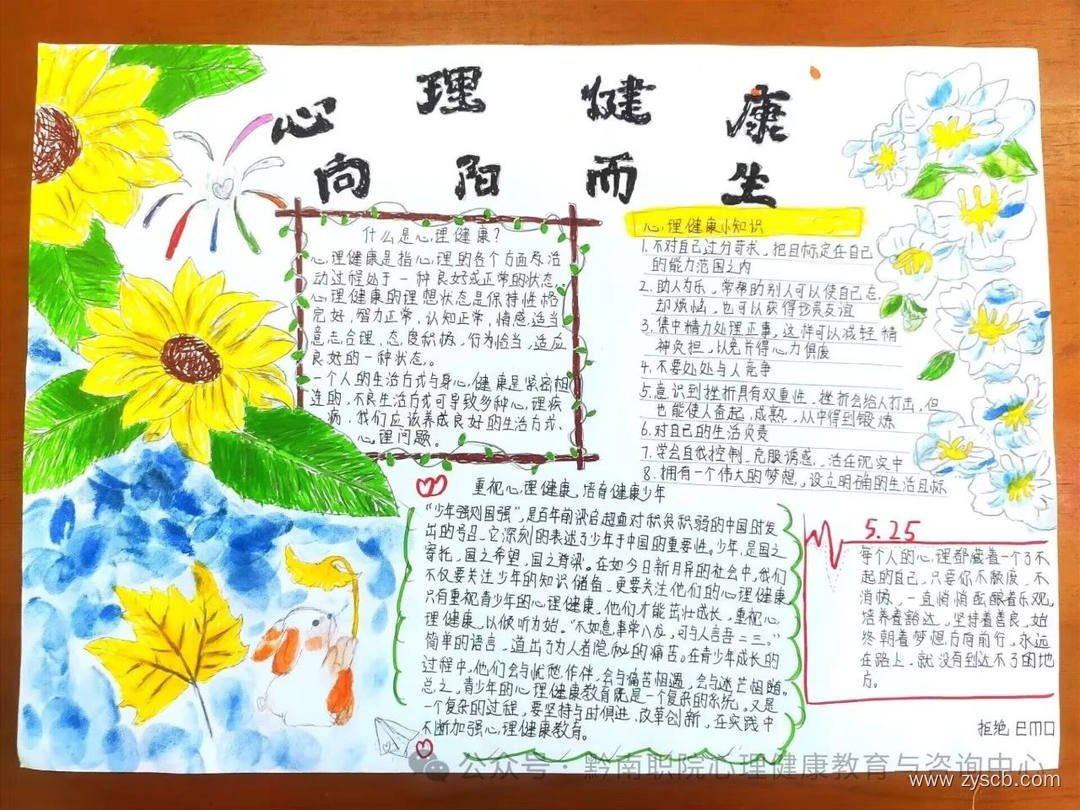 心理健康
向阳而生
什么是心理健康？
心理健康是指心理的各个方面及活
动过程处于一种良好或正常的状态。
心理健康的理想状态是保持性格
完好，智力正常，认知正常，情感适当
意志合理，态度积极，行为恰当，适应
良好的一种状态。
一个人的生活方式与身心健康是紧密相
连的，不良生活方式可导致多种心理疾
病，我们应该养成良好的生活方式、
心理问题。
心理健康小知识
1. 不对自己过分苛求，把目标定在自己
的能力范围之内
2. 助人为乐，常帮助别人可以使自己忘
却烦恼，也可以获得珍贵友谊
3. 集中精力处理正事，这样可以减轻精
神负担，以免弄得心力俱废
4. 不要处处与人竞争
5. 意识到挫折具有双重性，挫折会给人打击，但
也能使人奋起，成熟，从中得到锻炼
6. 对自己的生活负责
7. 学会自我控制，克服诱惑，活在现实中
8. 拥有一个伟大的梦想，设立明确的生活目标
重视心理健康，培育健康少年
“少年强则国强”，是百年前梁启超面对积贫积弱的中国时发
出的号召，它深刻的表述了少年于中国的重要性。少年，是国之
寄托，国之希望，国之脊梁。在如今日新月异的社会中，我们
不仅要关注少年的知识储备，更要关注他们的心理健康
只有重视青少年的心理健康，他们才能茁壮成长，重视心
理健康，以倾听为始。“不如意事常八九，可与人言吾二三。”
简单的语言，道出了为人者隐秘的痛苦。在青少年成长的
过程中，他们会与忧愁作伴，会与痛苦相遇，会与迷茫相随。
总之，青少年的心理健康教育既是一个复杂的系统，又是
一个复杂的过程，要坚持与时俱进，改革创新，在实践中
不断加强心理健康教育。
5.25
每个人的心理都藏着一个了不
起的自己，只要你不颓废，不
消极，一直悄悄酝酿着乐观，
培养着豁达，坚持着善良，始
终朝着梦想方向前行，永远
在路上，就没有到达不了的地
方。
拒绝EMO
公众号·黔南职院心理健康教育与咨询中心
www.zyscb.com